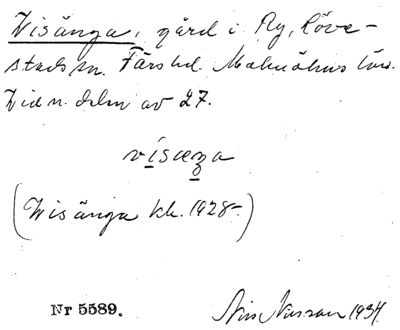 Wisänga, gård i Ry, Löve-
stads sn. Färs hd. Malmöhus län.
Tid n. delen av 27.
vísæŋa
(Wisänga kh. 1928-)
Nr 5589. Nils Nilsson 1934.